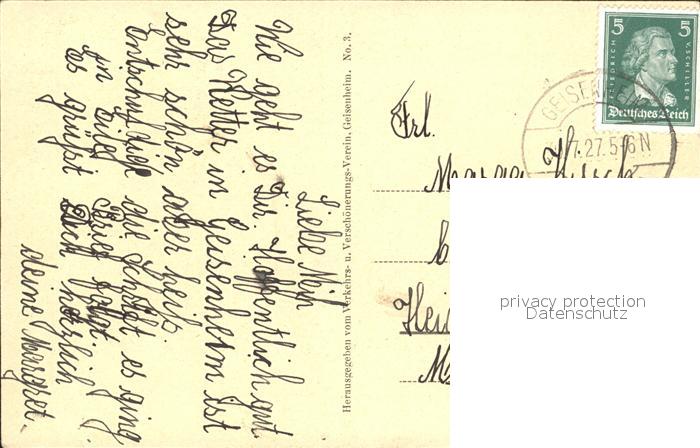 Liebe
Wie geht es Dir. Hoffentlich gut.
Das Wetter in Geisenheim ist
sehr schön aber heiß.
Entschuldige die Schrift es ging
ein Brief folgt.
Es grüßt Dich herzlich
deine Margret.
Herausgegeben vom Verkehrs- u. Verschönerungs-Verein, Geisenheim. No. 3.
5 5
FRIEDRICH V SCHILLER
Deutsches Reich
GEISENHEIM
7.27.5-6N
Frl.
privacy protection
Datenschutz